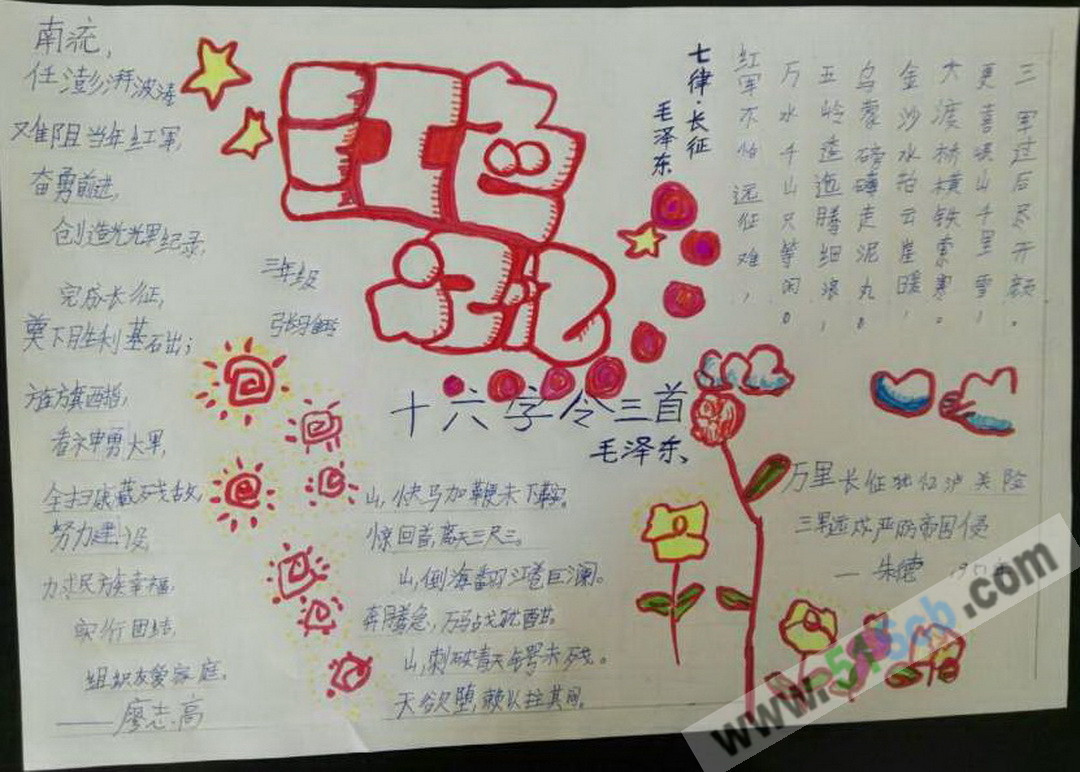 南流,
任澎湃波涛
难阻当年红军,
奋勇前进,
创造光光军纪录,
完成长征,
奠下胜利基石出;
西指,
看神勇大军,
全扫康藏残敌,
努力建设,
力求民族幸福.
实行团结.
组织友爱家庭.
——廖志高
红色
三年级
十六字令三首
毛泽东、
山,快马加鞭未下鞍。
惊回首,离天三尺三。
山,倒海翻江卷巨澜。
奔腾急,万马战犹酣。
山,刺破青天锷未残。
天欲堕,赖以拄其间。
七律·长征
毛泽东
红军不怕远征难,
万水千山只等闲。
五岭逶迤腾细浪,
乌蒙磅礴走泥丸。
金沙水拍云崖暖,
大渡桥横铁索寒。
更喜岷山千里雪,
三军过后尽开颜。
万里长征犹忆泸关险
三军远戍严防帝国侵
— 朱德
www.516cb.com